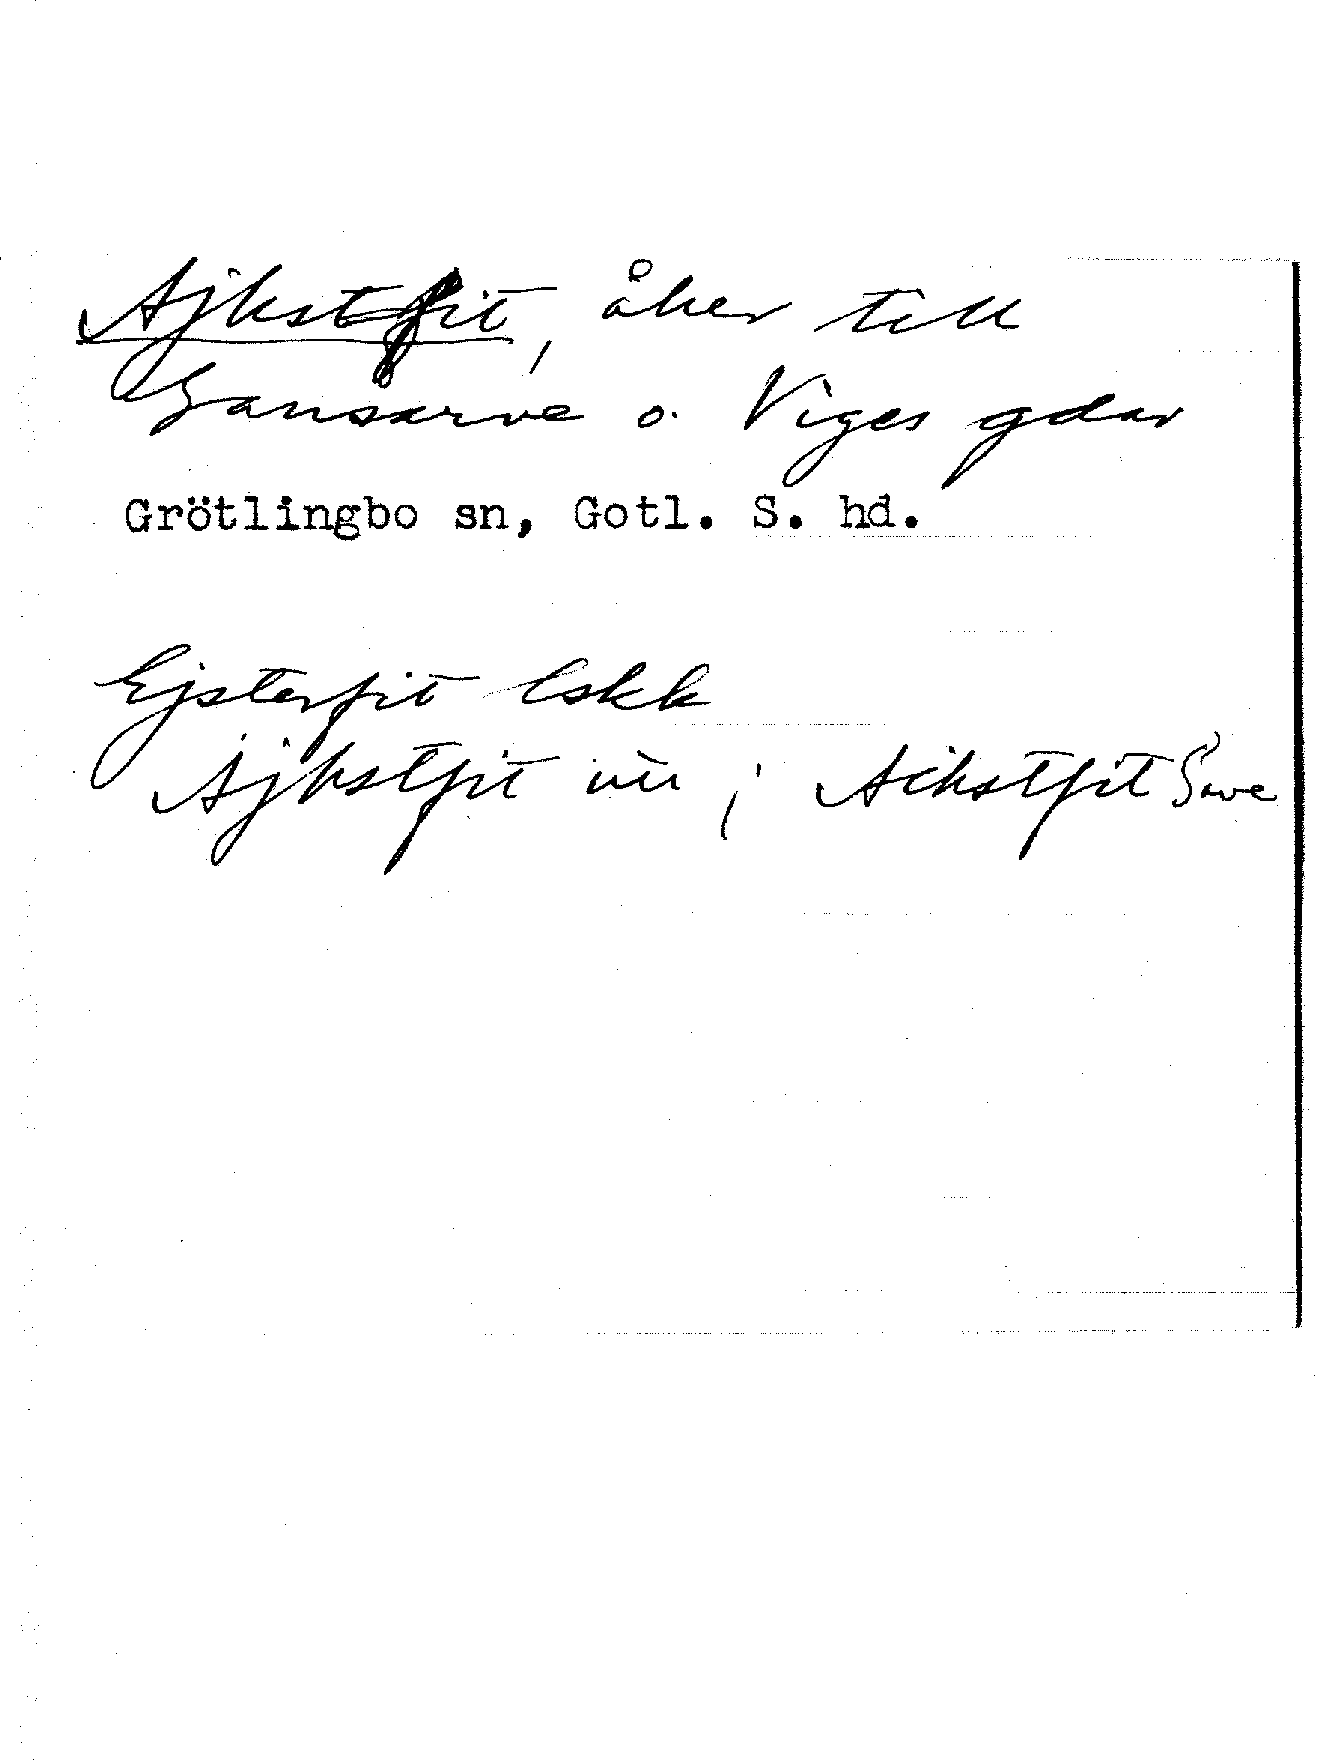 Ajkstfit, åker till
Gansarve o. Viges gdar
Grötlingbo sn, Gotl. S. hd.
Ejsterfit lskk
Ajkstfit un ; Aikstfit Save